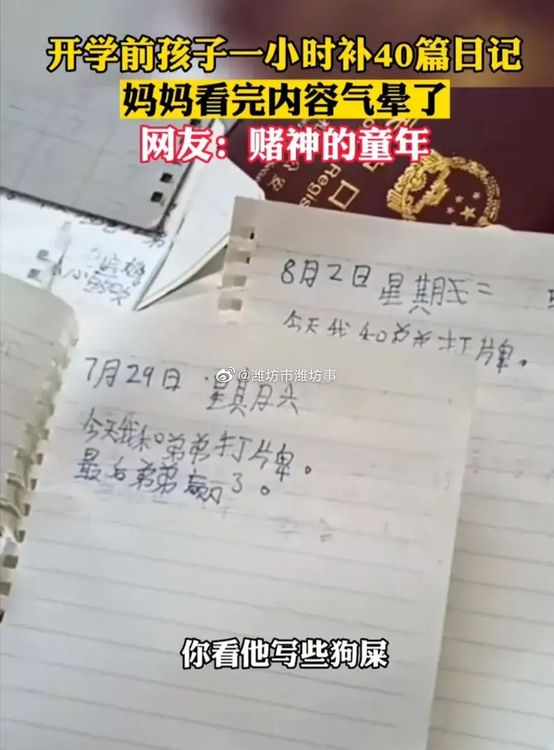 开学前孩子一小时补40篇日记
妈妈看完内容气晕了
网友：赌神的童年
8月2日 星期三
今天我和弟弟打牌。
@潍坊市潍坊事
7月29日 星期六
今天我和弟弟打牌。
最后弟弟赢了。
你看他写些狗屎